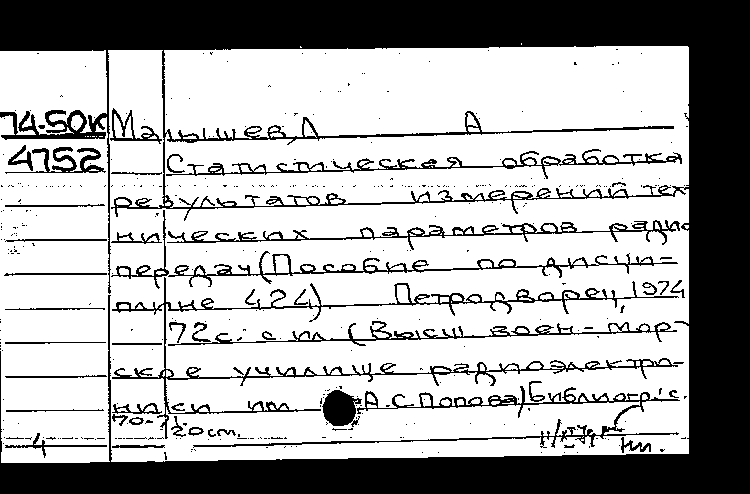 74-50К Малышев, Л А
4752 Статистическая обработка
результатов измерений тех-
нических параметров радио
передач (Пособие по дисци=
плине 424). Петродворец, 1974
72с. с ил. (Высш воен-мор-
ское училище радиоэлектро-
ники им А.С.Попова) Библиогр: с.
70-71. 20 см.
4 нп.